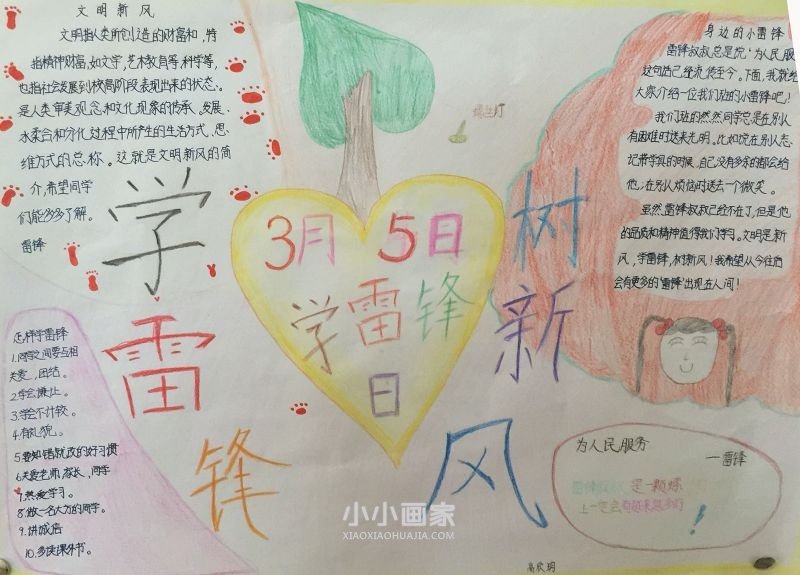 文明新风
文明指人类所创造的财富和，特
指精神财富，如文学，艺术教育等，科学等，
也指社会发展到较高阶段表现出来的状态。
是人类审美观念和文化现象的传承、发展、
水柔合和分化过程中所产生的生活方式、思
维方式的总称。这就是文明新风的简
介，希望同学
们能多多了解。
雷锋
学
雷
锋
3月5日
学雷锋
日
树
新
风
身边的小雷锋
雷锋叔叔总是说"为人民服
这句话已经流传至今。下面，我就给
大家介绍一位我们班的小雷锋吧！
我们班的然然同学总是在别人
有困难时送来光明。比如说在别人忘
记带学具的时候，自己没有多余的都会给
他，在别人烦恼时送去一个微笑。
虽然雷锋叔叔已经不在了，但是他
的品质和精神值得我们学习。文明是新
风，学雷锋，树新风！我希望从今往后
会有更多的"雷锋"出现在人间！
怎样学雷锋
1.同学之间要与相
关爱，团结。
2.学会谦让。
3.学会不计较。
4.有礼貌。
5.要知错就改的好习惯
6.关爱老师，家长，同学
7.热爱学习。
8.做一名大方的同学。
9.讲诚信
10.多读课外书。
为人民服务
—雷锋
是一颗
上一定会
小小画家
XIAOXIAOHUAJIA.COM
高欣玥